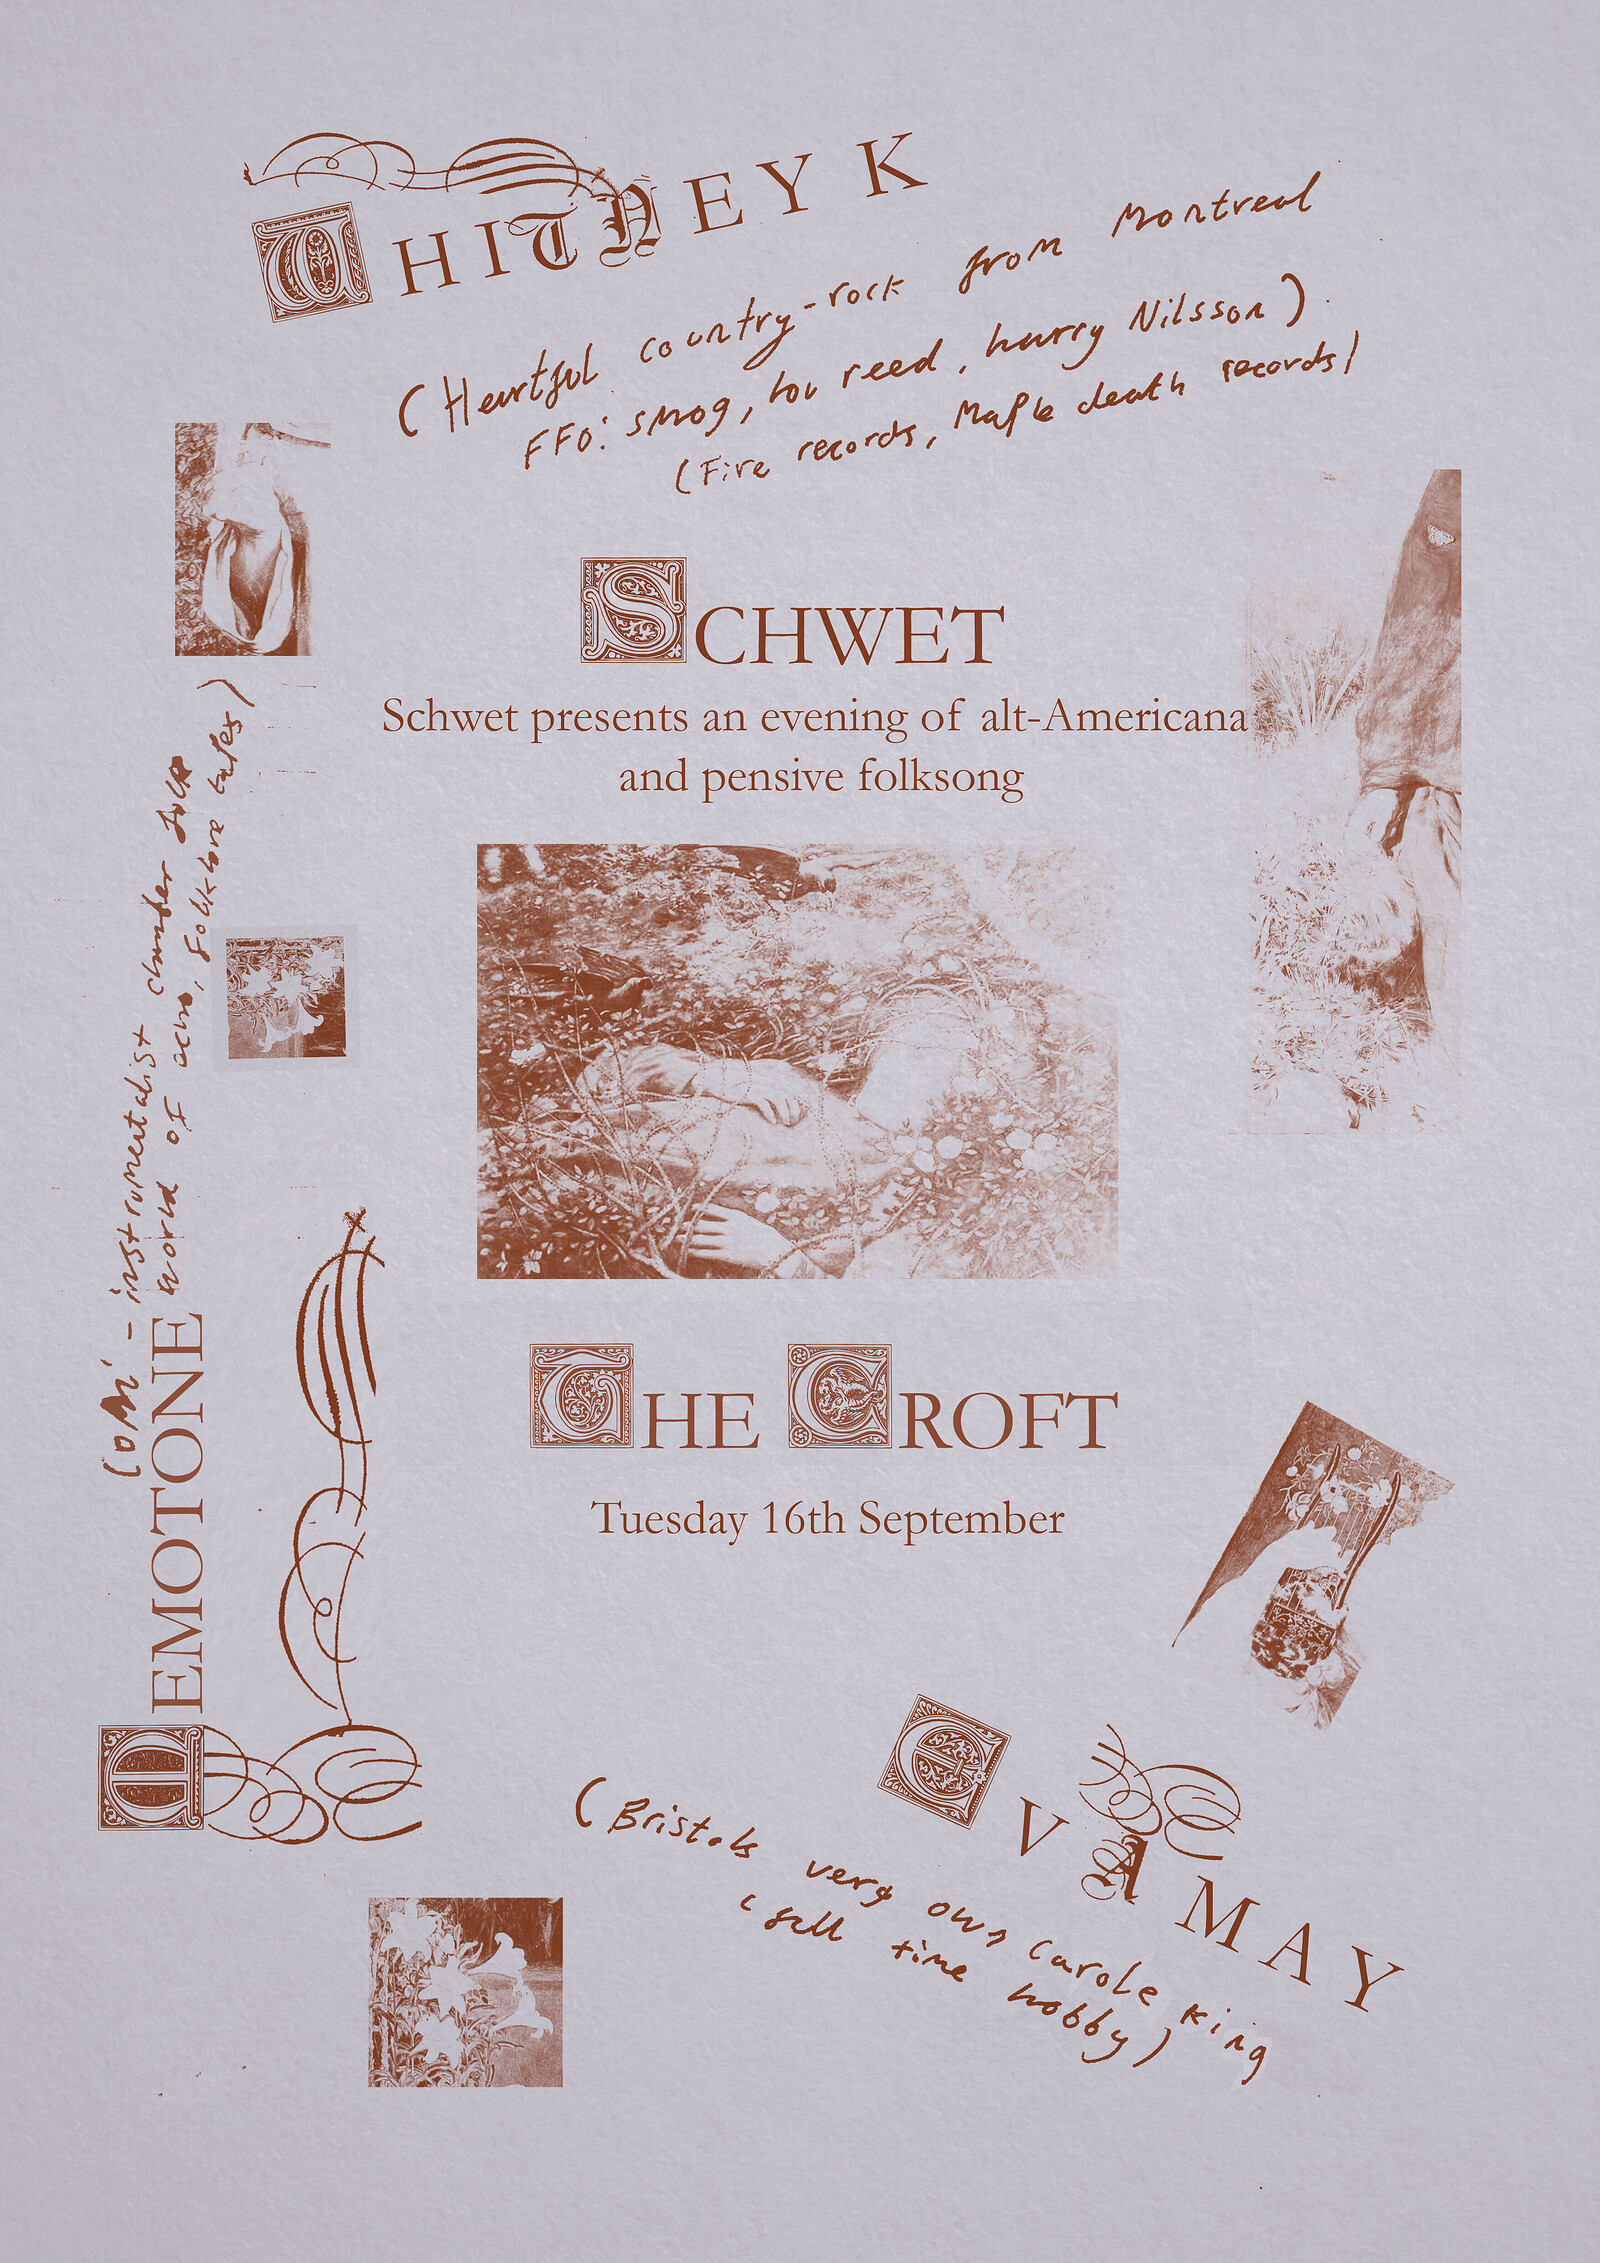 WHITNEY K
(Heartful country-rock from Montreal
FFO: smog, lou reed, harry Nilsson)
(Fire records, Maple death records)
SCHWET
Schwet presents an evening of alt-Americana
and pensive folksong
THE CROFT
Tuesday 16th September
EMOTONE
- instrumentalist chamber folk
world of echo, Folklore tapes)
EVA MAY
(Bristols very own Carole King
(full time hobby)